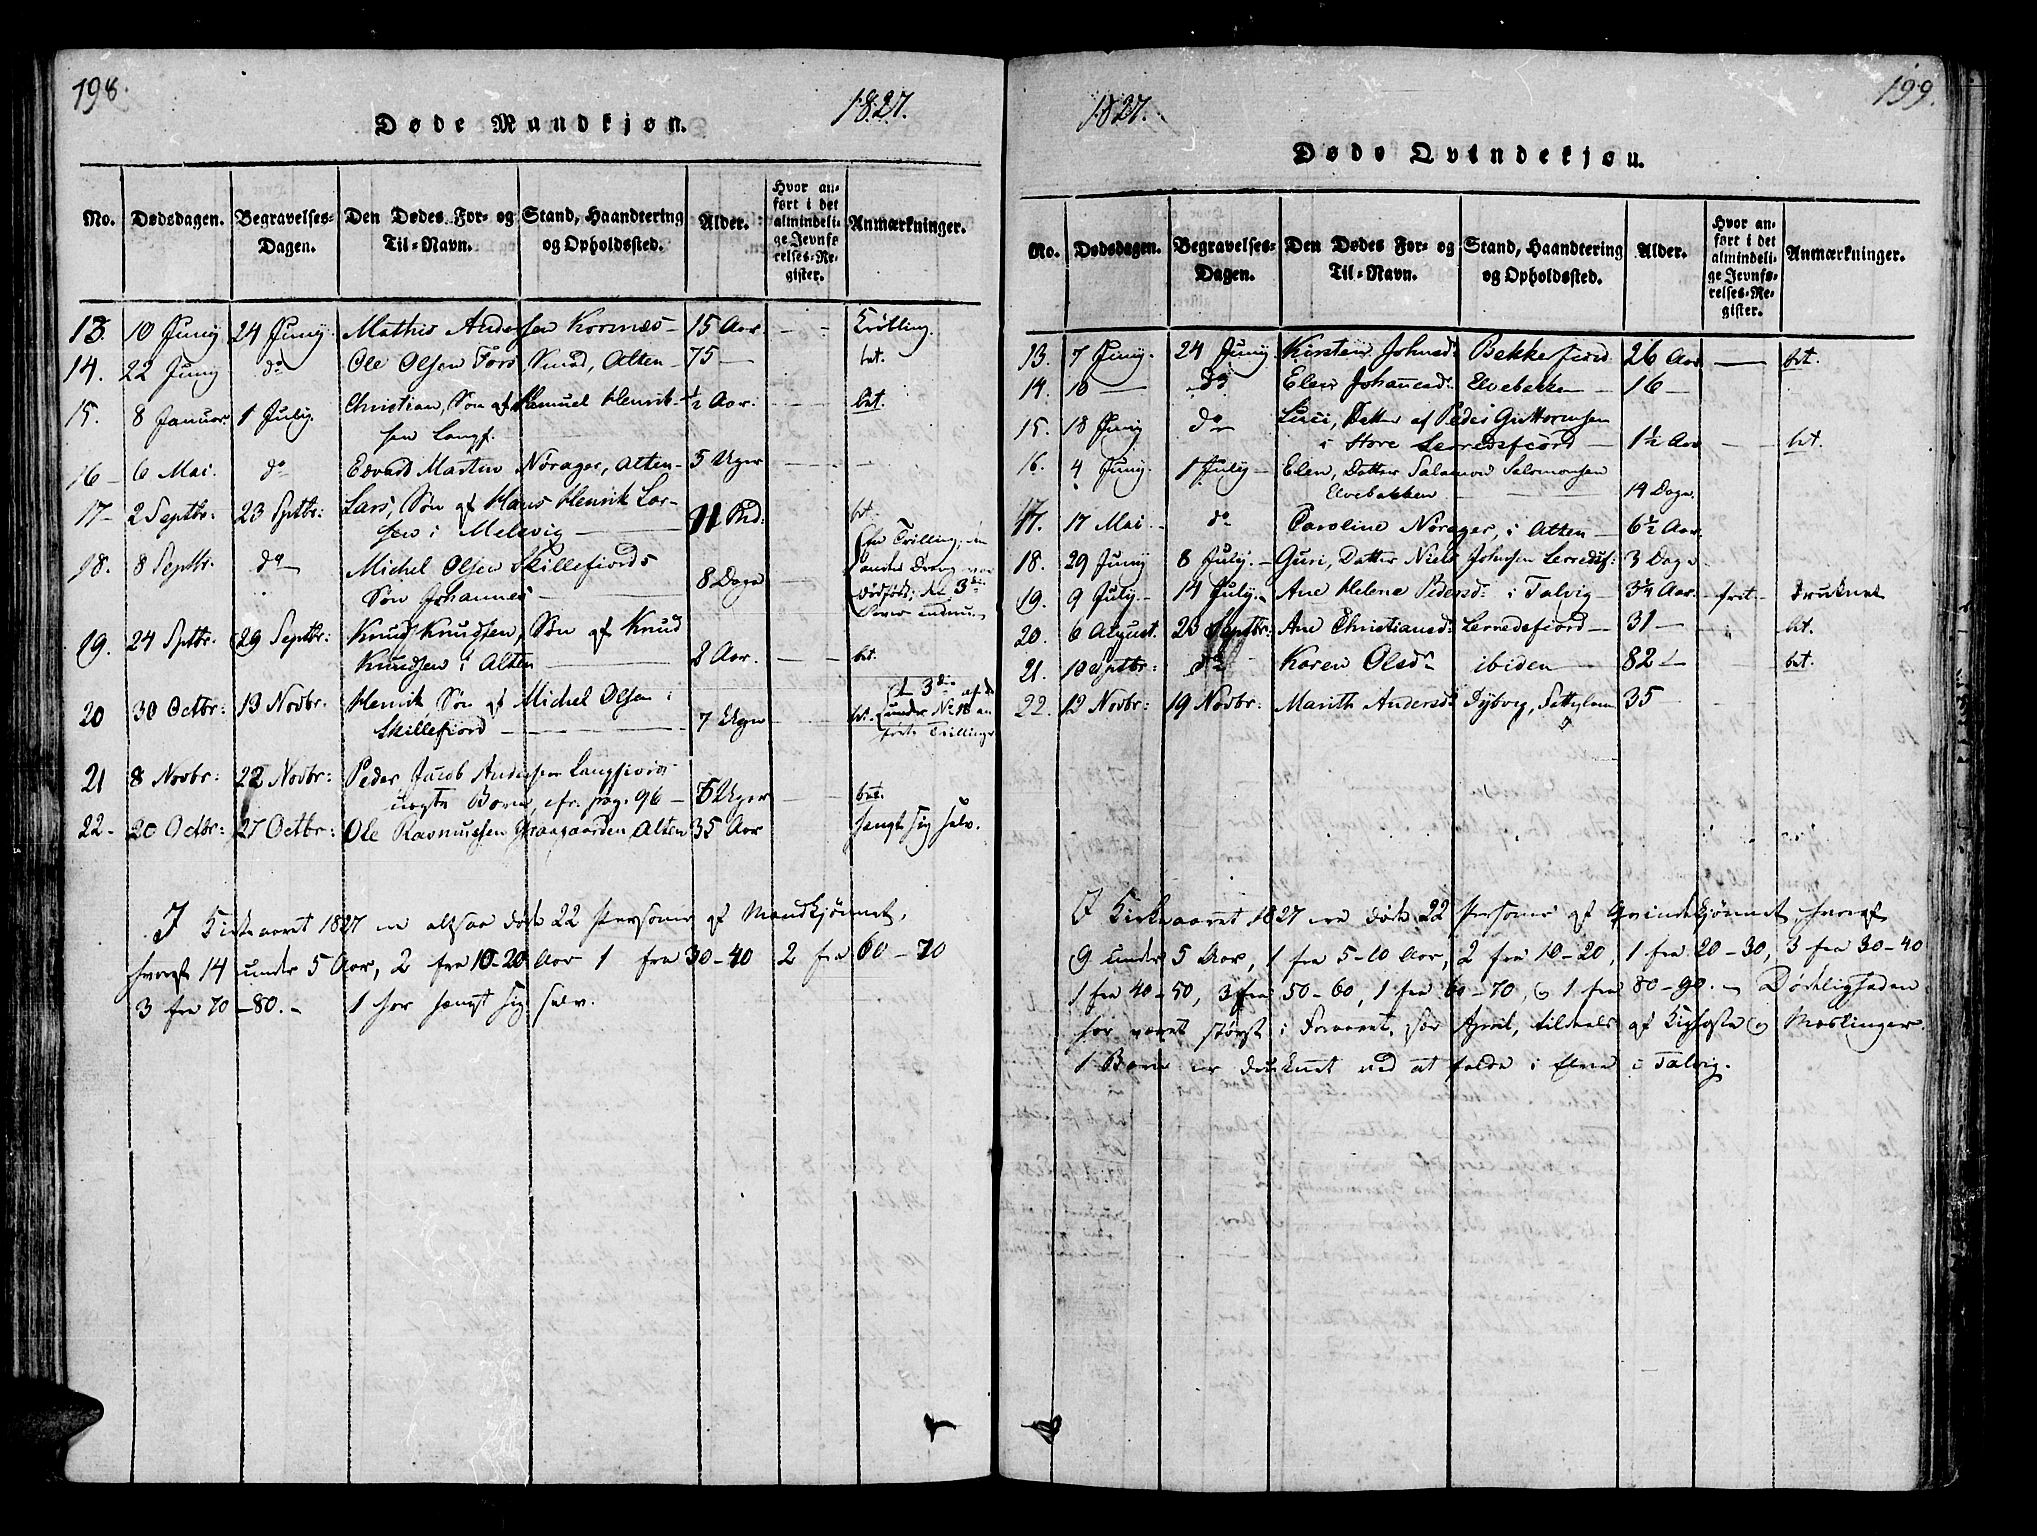 198.
1827.
Døde Mandkjøn.
No. Dødsdagen. Begravelses-Dagen. Den Dødes For- og Til-Navn. Stand, Haandtering og Opholdssted. Alder. Hvor anført i det almindelige Jevnførelses-Register. Anmærkninger.
13. 10 Junij 24 Junij Mathis Andersen Kornæs 15 Aar
14. 22 Junij do Ole Olsen Alten 75 — bet.
15. 8 Januar 1 Julij Christian, Søn af Samuel Henrik- ½ Aar. bet.
sen Langf.
16 6 Mai. do Edvard Martin Norager, Alten 5 Uger
17 2 Septbr. 23 Sptbr: Lars, Søn af Hans Henrik Lar- 11 bet.
sen i Melsvig
18. 8 Septbr. do Michel Olsen Skillefjords 8 Dage
Søn Johannes
19. 24 Sptbr. 29 Septbr: Knud Knudsen, Søn af Knud
Knudsen i Alten 2 Aar. bet.
20 30 Octbr: 13 Novbr. Henrik Søn af Michel Olsen i
Skillefiord 7 Uger bet.
21 8 Novbr: 22 Novbr: Peder Jacob Andersen Langfiords
uægte Barn, cfr. pag. 96 — 5 Uger bet.
22 20 Octbr: 27 Octbr: Ole Rasmussen Alten 35 Aar hengt sig selv.
I Kirkeaaret 1827 er altsaa døde 22 Personer af Mandkjønnet,
hvoraf 14 under 5 Aar, 2 fra 10-20 Aar 1 fra 30-40 2 fra 60-70
3 fra 70-80. — 1 har hengt sig selv.
199.
1827.
Døde Qvindekjøn.
No. Dødsdagen. Begravelses-Dagen. Den Dødes For- og Til-Navn. Stand, Haandtering og Opholdssted. Alder. Hvor anført i det almindelige Jevnførelses-Register. Anmærkninger.
13. 7 Junij. 24 Junij Kirsten Johnsd: Bekkefiord 26 Aar — bet.
14. 10 — do Elen Johannesd: Elvebakken — 16 —
15. 18 Junij do Datter af Peder Guttormsen
i Store Lerredsfiord 1½ Aar — bet.
16. 4 Junij. 1 Julij Elen, Datter Salamon Salomonsen
Elvebakken 14 Dage
17. 17 Mai. do Caroline Norager, i Alten 6½ Aar
18. 29 Junij 8 Julij. Guri, Datter Niels Johnsen Lerredsf: 3 Dage
19. 9 Julij. 14 Julij. Ane Helene Pedersd: i Talvig 3¼ Aar. druknet
20. 6 August. 23 Septbr: Ane Christiansd: Lerredsfiord 31 — bet.
21. 10 Sptbr: do Karen Olsd: ibiden 82 — bet.
22. 12 Novbr: 19 Novbr: Marith Andersd: 35
I Kirkeaaret 1827 ere døde 22 Personer af Qvindekjønnet, hvoraf
9 under 5 Aar, 1 fra 5-10 Aar, 2 fra 10-20, 1 fra 20-30, 3 fra 30-40
1 fra 40-50, 3 fra 50-60, 1 fra 60-70, og 1 fra 80-90. — Dødeligheden
har været størst i Foraaret, især April, tildeels af Kighoste og Meslinger.
1 Barn er druknet ved at falde i Elven i Talvig.